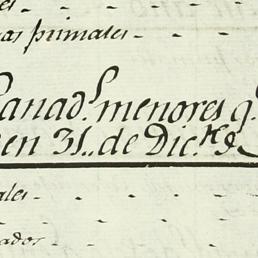 as primales -
Ganad.s menores q.
en 31.. de Dic.re
ales -
ados -